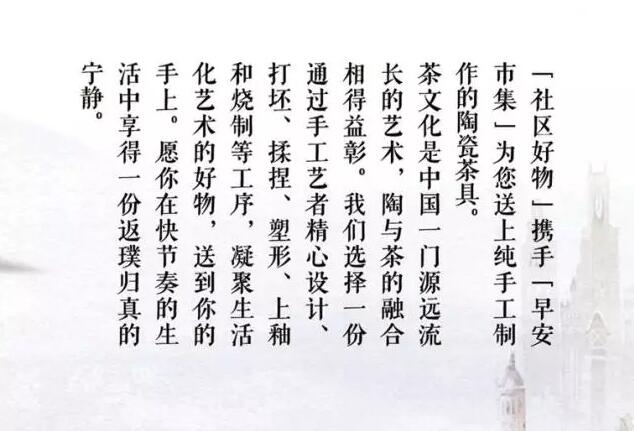 「社区好物」携手「早安
市集」为您送上纯手工制
作的陶瓷茶具。
茶文化是中国一门源远流
长的艺术，陶与茶的融合
相得益彰。我们选择一份
通过手工艺者精心设计、
打坯、揉捏、塑形、上釉
和烧制等工序，凝聚生活
化艺术的好物，送到你的
手上。愿你在快节奏的生
活中享得一份返璞归真的
宁静。